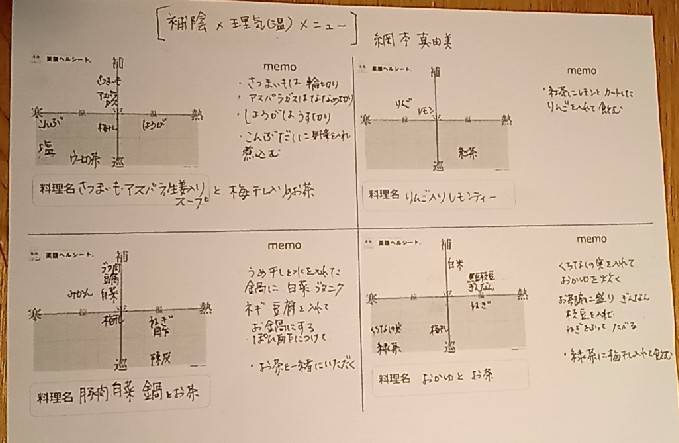 [補陰 × 理気(温) メニュー]
薬膳ヘルシート。
補
さつまいも
アスパラガス
寒
温
熱
こんぶ
梅干し
しょうが
塩
ウーロン茶
巡
memo
・さつまいもは輪切り
・アスパラガスはななめ切り
・しょうがはうす切り
・こんぶだしに野菜を入れ
煮込む
料理名 さつまいも・アスパラ・生姜入りスープ と 梅干し入りお茶
補
りんご
レモン
寒
熱
紅茶
巡
memo
・紅茶にレモンとカットした
りんごを入れて飲む
料理名 りんご入りレモンティー
薬膳ヘルシート。
補
ブタ肉
豆腐
白菜
みかん
寒
温
熱
梅干し
ねぎ
陳皮
巡
memo
うめ干しと水を入れた
鍋に 白菜 ブタニク
ネギ 豆腐を入れて
お鍋にする
・お茶と一緒にいただく
料理名 豚肉 白菜 鍋とお茶
薬膳ヘルシート。
補
白米
枝豆
ぎんなん
寒
熱
ねぎ
くちなしの実
梅干し
緑茶
巡
memo
くちなしの実を入れて
おかゆを炊く
お茶碗に盛り ぎんなん
枝豆を入れ
ねぎをふって たべる
・緑茶に梅干し入れて飲む
料理名 おかゆと お茶